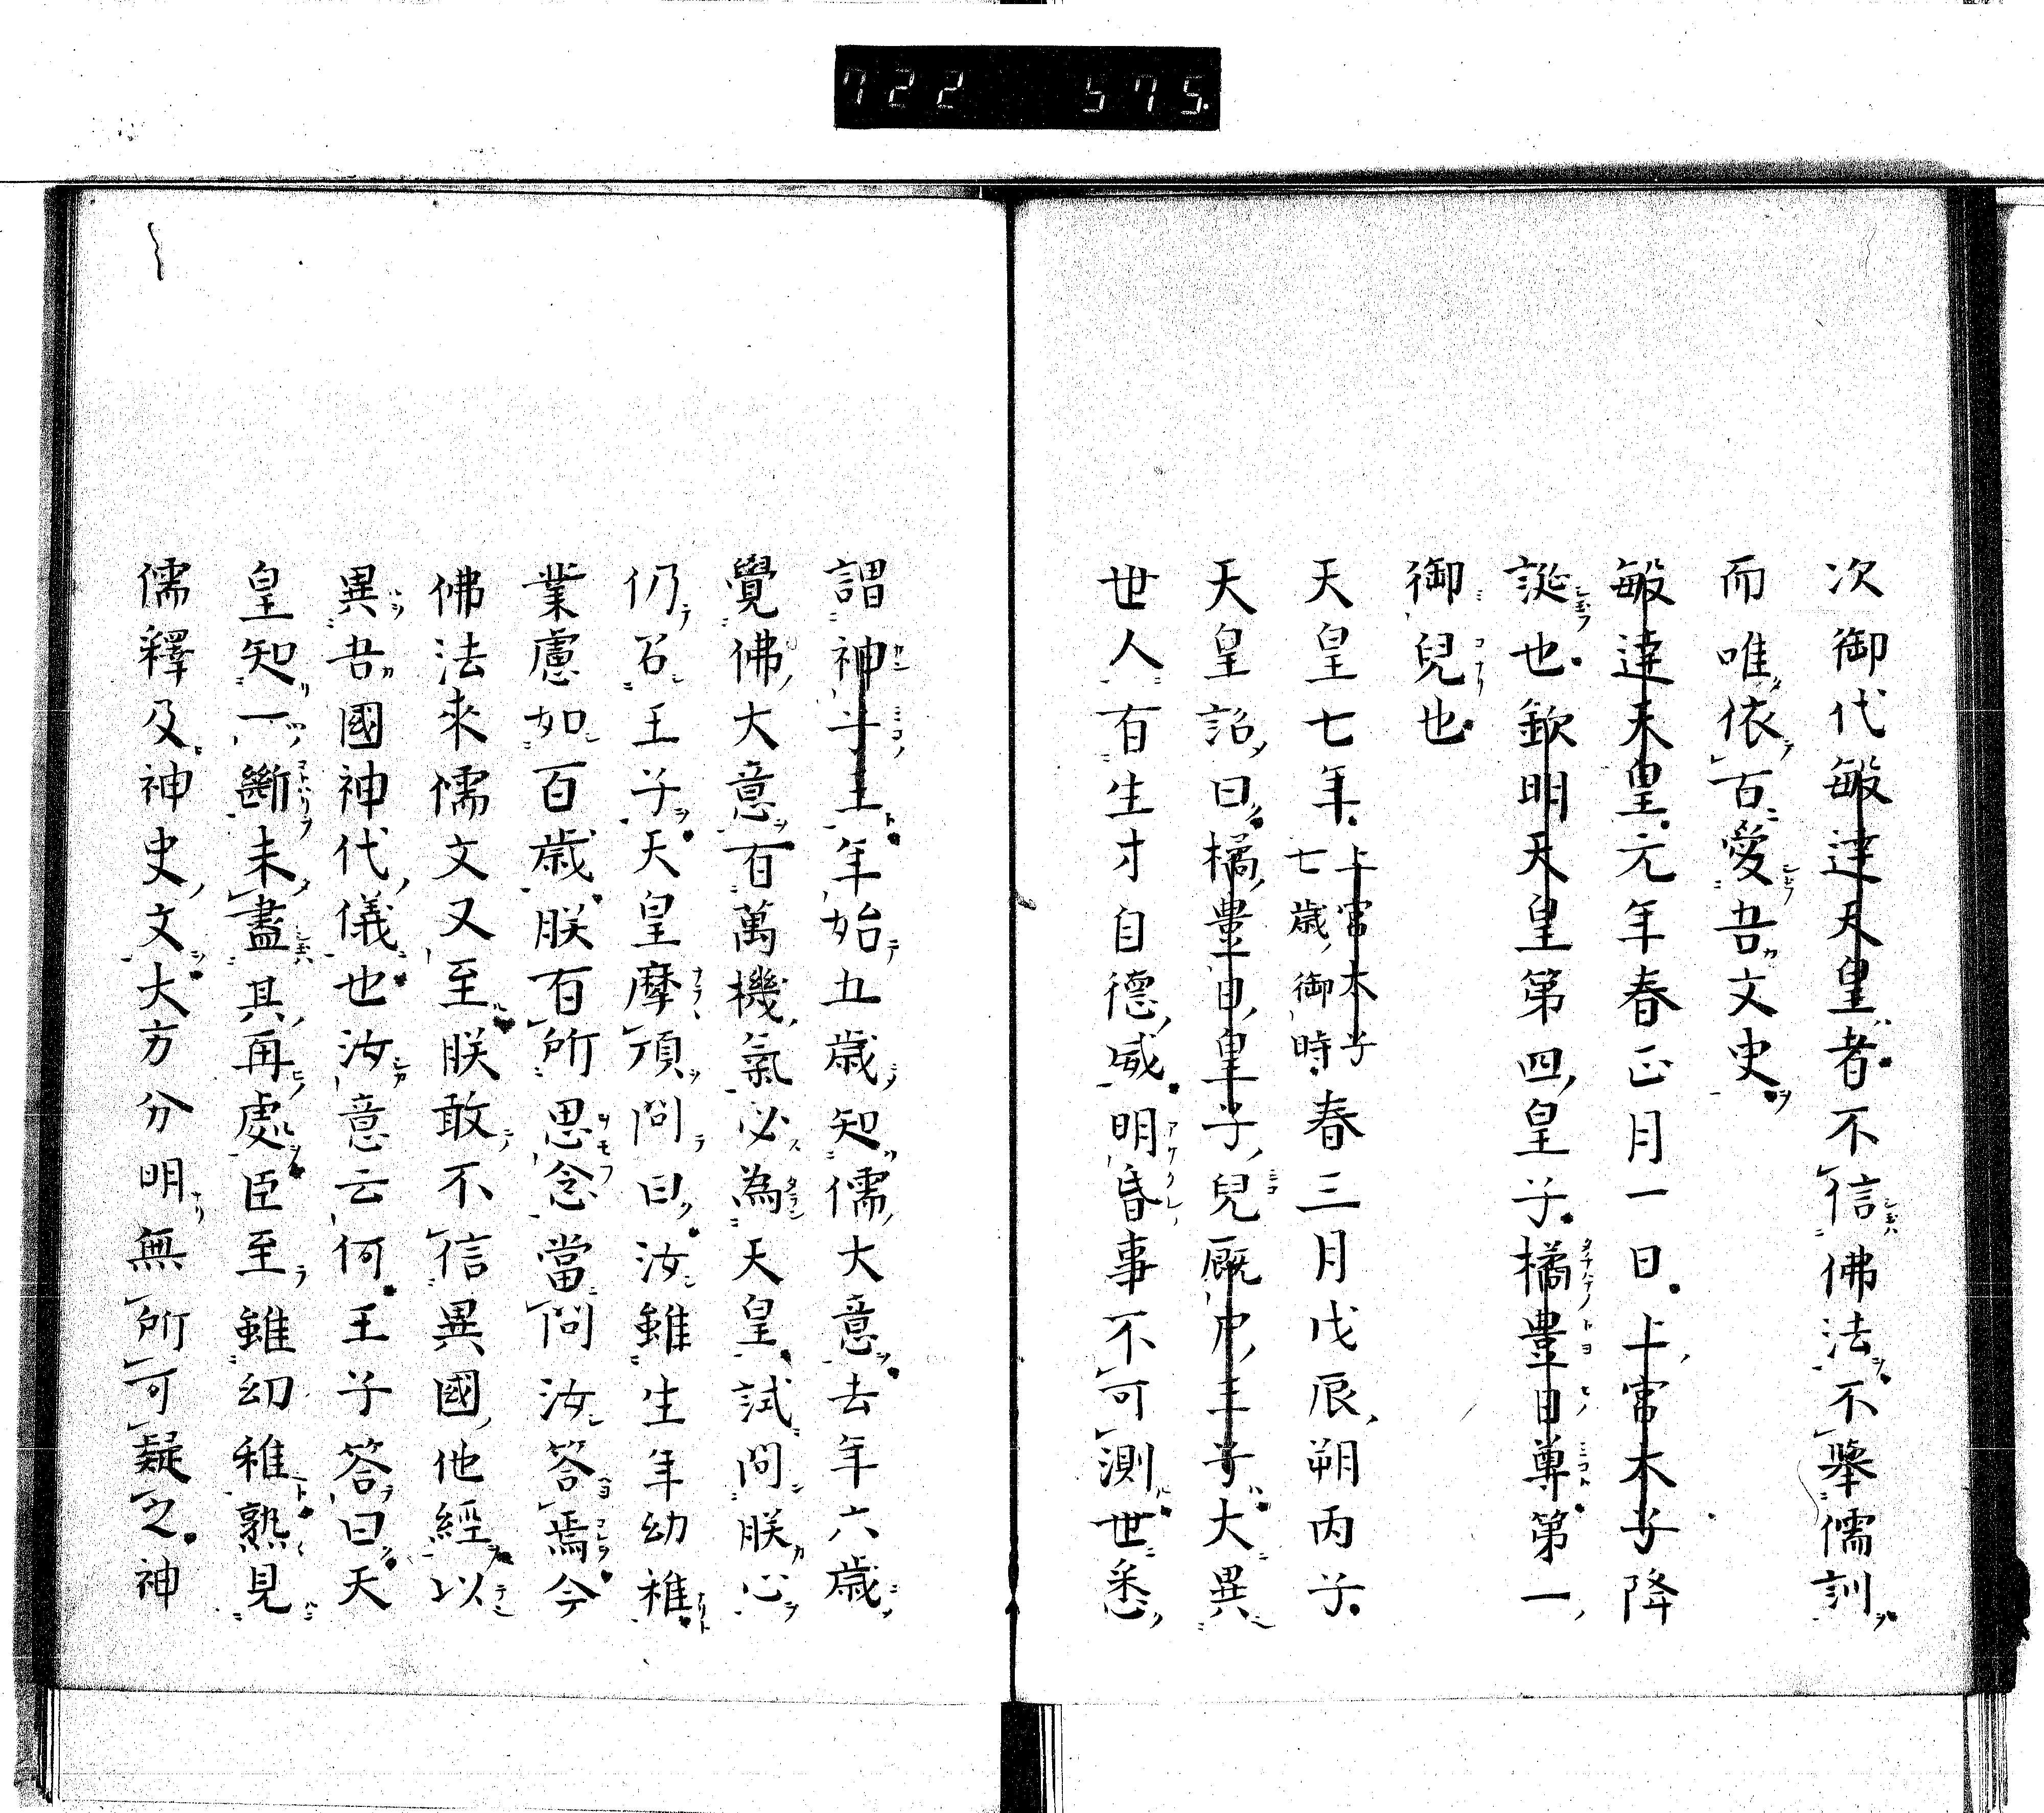 722 575.
次御代敏達天皇者不信佛法不舉儒訓
而唯依古愛吾文史
敏達天皇元年春正月一日上宮太子降
誕也欽明天皇第四皇子橘豊日尊第一
御兒也
天皇七年
上宮太子
七歳御時
春三月戊辰朔丙子
天皇詔曰橘豊日皇子兒厩戸王子大異
世人有生才自德威明昏事不可測世悉
謂神子王年始五歳知儒大意去年六歳
覺佛大意有萬機氣必為天皇試問朕心
仍召王子天皇摩頂問曰汝雖生年幼稚
業慮如百歳朕有所思念當問汝答焉今
佛法來儒文又至朕敢不信異國他經以
異吾國神代儀也汝意云何王子答曰天
皇知一斷未盡其再處臣至雖幼稚熟見
儒釋及神史文大方分明無所可疑之神